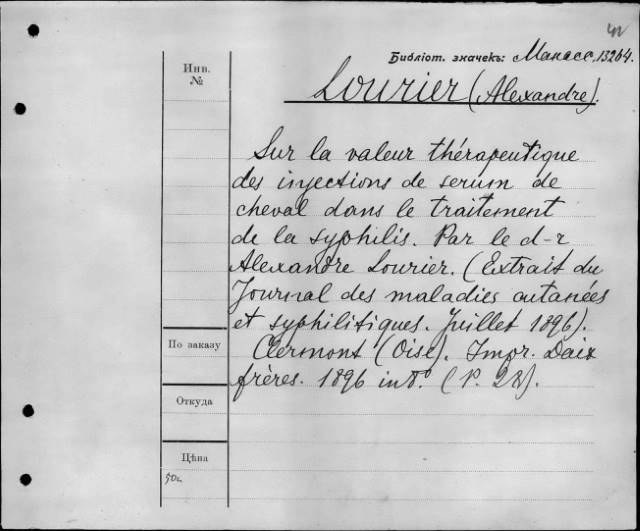 Библіот. значекъ: Манасс. 13264.
Инв.
№
Lourier (Alexandre).
Sur la valeur thérapeutique
des injections de serum de
cheval dans le traitement
de la syphilis. Par le d-r
Alexandre Lourier. (Extrait du
Journal des maladies cutanées
et syphilitiques. Juillet 1896).
Clermont (Oise). Impr. Daix
frères. 1896 in 8°. (P. 28).
По заказу
Откуда
Цѣна